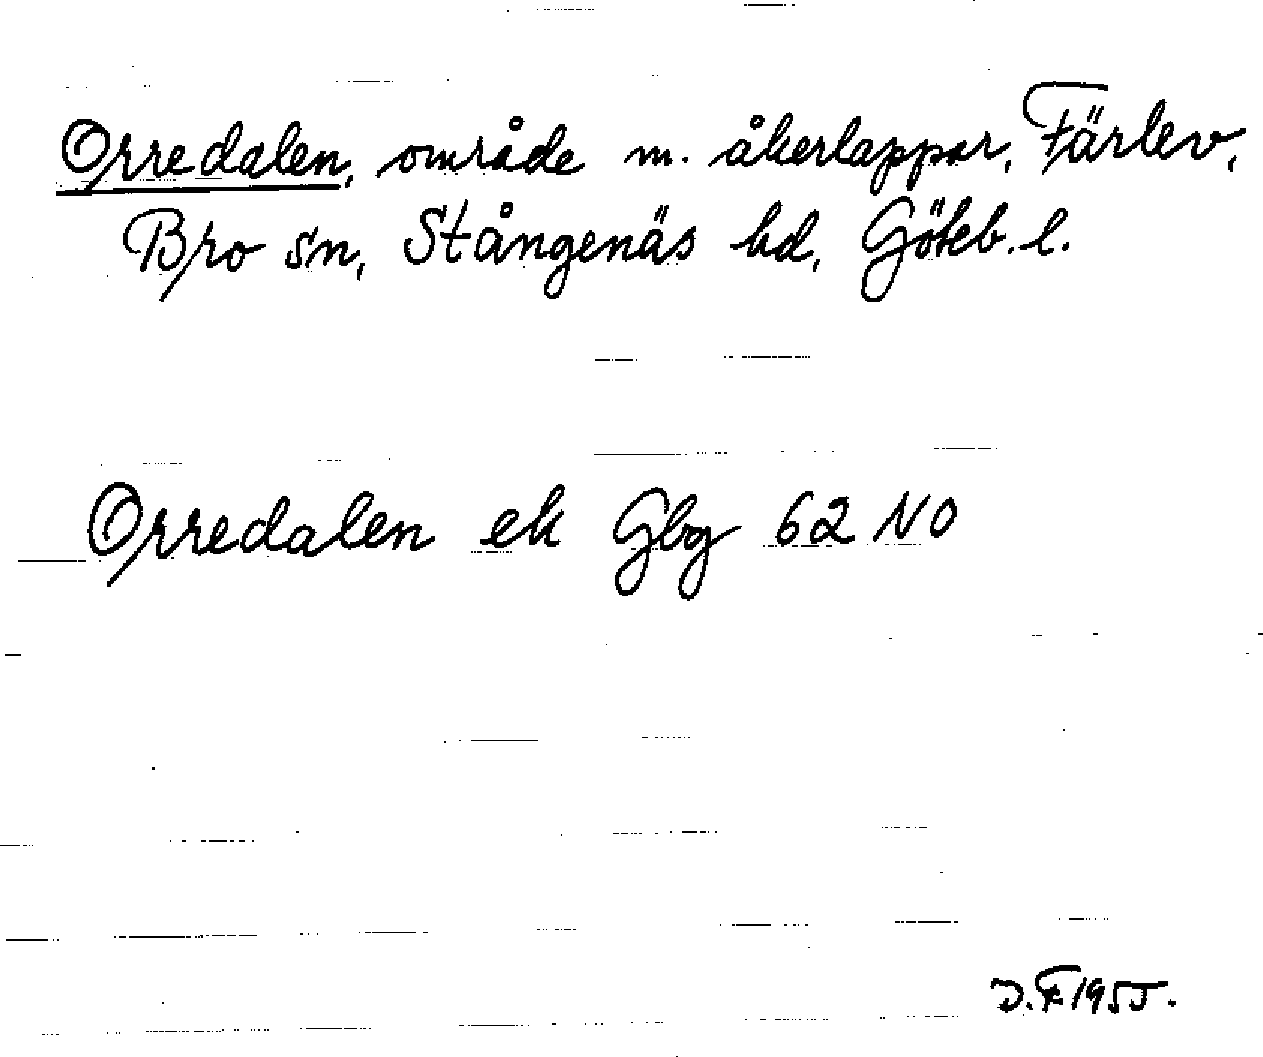 Orredalen, område m. åkerlappar, Färlev,
Bro sn, Stångenäs hd, Göteb. l.
Orredalen ek Gbg 62 NO
J.F. 1955.